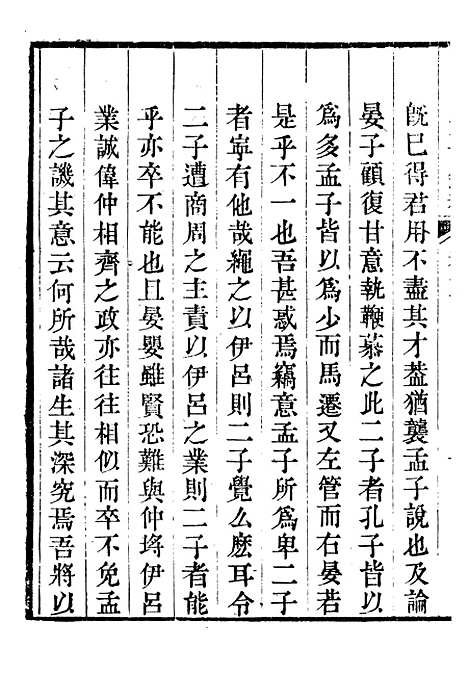 既已得君用不盡其才葢猶襲孟子說也及論
晏子顧復甘意執鞭慕之此二子者孔子皆以
爲多孟子皆以爲少而馬遷又左管而右晏若
是乎不一也吾甚惑焉竊意孟子所爲卑二子
者寧有他哉繩之以伊呂則二子覺么麽耳令
二子遭商周之主責以伊呂之業則二子者能
乎亦卒不能也且晏嬰雖賢恐難與仲埒伊呂
業誠偉仲相齊之政亦往往相似而卒不免孟
子之譏其意云何所哉諸生其深究焉吾將以